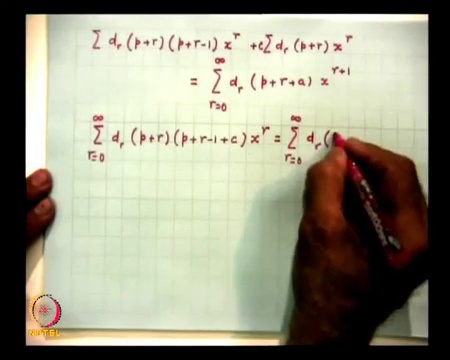 Σ dᵣ (p+r)(p+r-1) xʳ + cΣ dᵣ (p+r) xʳ
= Σ_{r=0}^{∞} dᵣ (p+r+a) x^{r+1}
Σ_{r=0}^{∞} dᵣ (p+r)(p+r-1+c) xʳ = Σ_{r=0}^{∞} dᵣ (
NPTEL